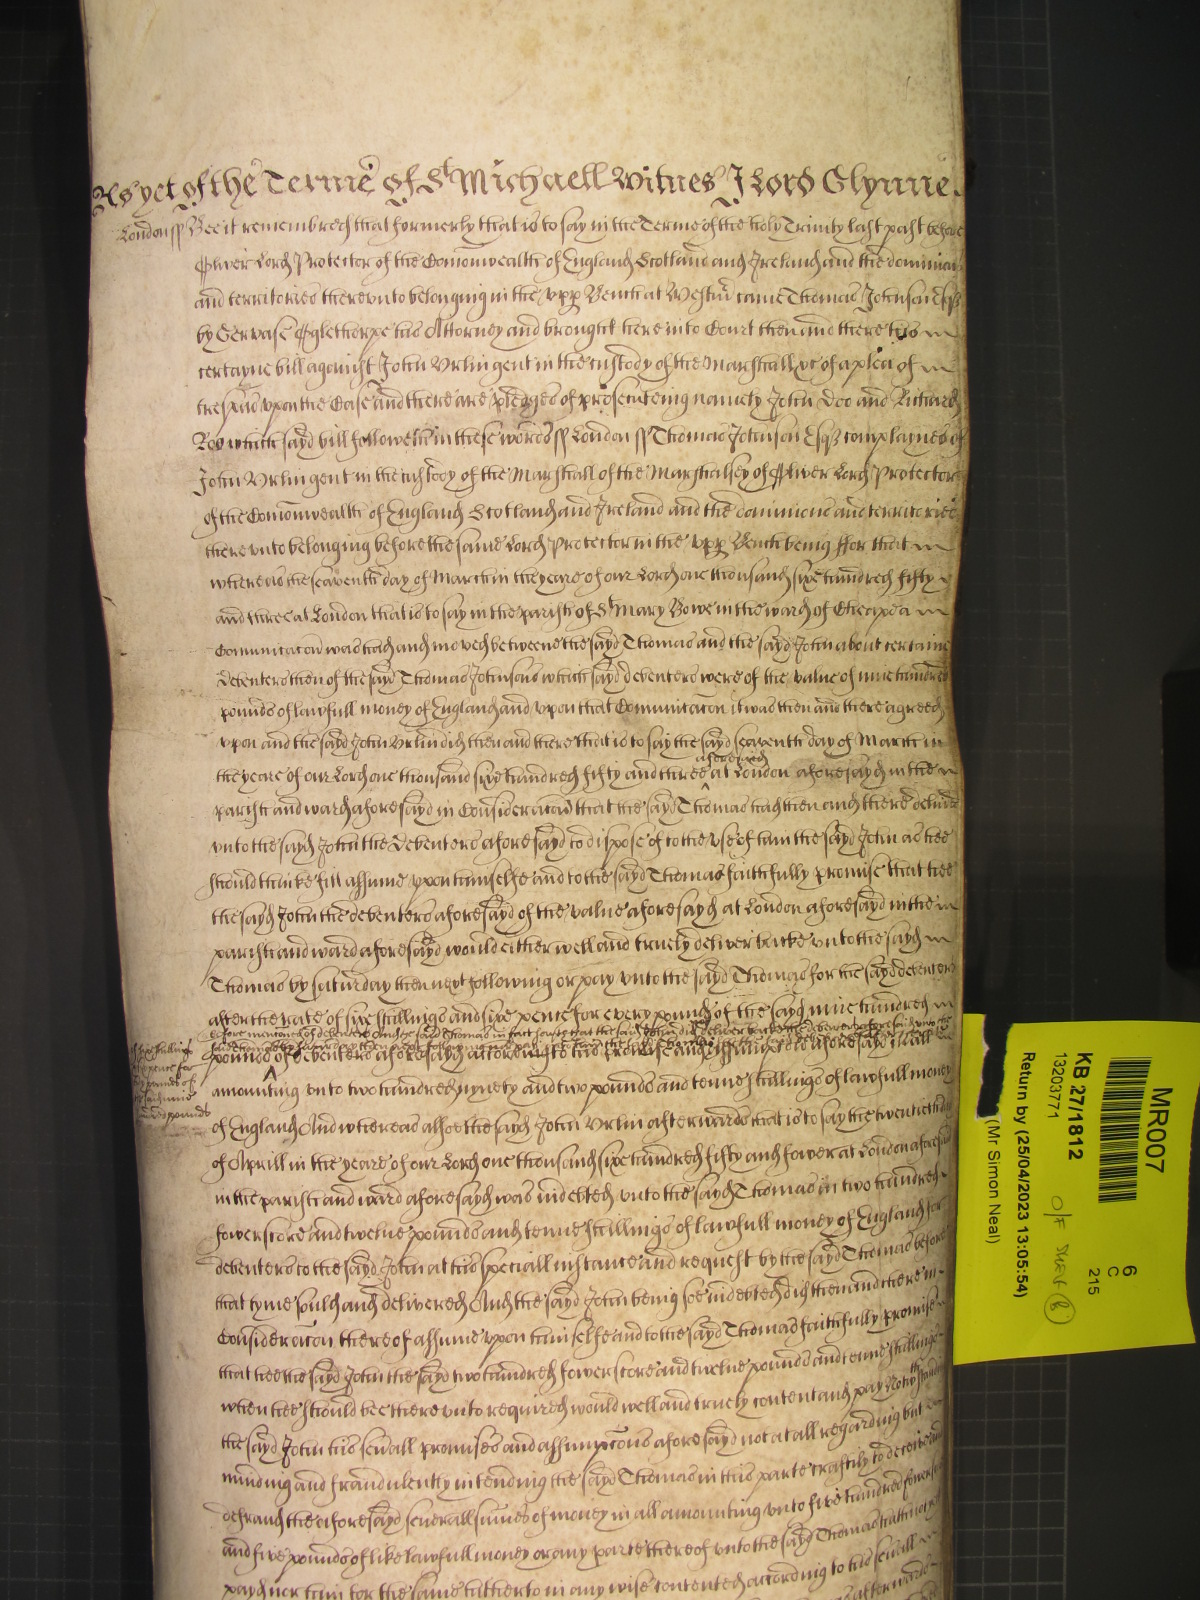 As yet of the Terme of St Michaell Witnes J Lord Glynne.
London ss Bee it remembred that formerly that is to say in the Terme of the holy Trinity last past before
Oliver Lord Protector of the Comonwealth of England Scotland and Ireland and the dominions
and territories therevnto belonging in the vpp Bench at Westmr came Thomas Johnson Esqr
by Gervase Oglethorpe his Attorney and brought here into Court then and there his
certayne bill against John Vrlin gent in the custody of the Marshall &c of a plea of
trespas vpon the Case and there are pledges of prosecuteing namely John Doo and Richard
Roo which sayd bill followeth in these words ss London ss Thomas Johnson Esqr complaynes of
John Vrlin gent in the custody of the Marshall of the Marshalsey of Oliver Lord Protector
of the Comonwealth of England Scotland and Ireland and the dominions and territories
therevnto belonging before the same Lord Protector in the vpp Bench being ffor that
whereas the seaventh day of March in the yeare of our Lord one thousand sixe hundred fifty
and three at London that is to say in the parish of St Mary Bowe in the ward of Cheape a
Comunicacon was had and moved betweene the sayd Thomas and the sayd John about certaine
debenters then of the sayd Thomas Johnsons which sayd debenters were of the value of nine hundred
pounds of lawfull money of England and vpon that Comunicacon it was then and there agreed
vpon and the sayd John Vrlin did then and there that is to say the sayd seaventh day of March in
the yeare of our Lord one thousand sixe hundred fifty and three aforesayd at London aforesayd in the
parish and ward aforesayd in Consideracon that the sayd Thomas had then and there deliued
vnto the sayd John the debenters aforesayd to dispose of to the vse of him the sayd John as hee
should thinke fitt assume vpon himselfe and to the sayd Thomas faithfully promise that hee
the sayd John the debenters aforesayd of the value aforesayd at London aforesayd in the
parish and ward aforesayd would either well and truely deliver backe vnto the sayd
Thomas by saturday then next following or pay vnto the sayd Thomas for the sayd debenters
after the rate of sixe shillings and sixe pence for every pound of the sayd nine hundred
before mentioned debenters And the said Thomas in fact saith that the said John did deliver backe the debenters aforesaid vnto the
pounds of debenters aforesayd according to his promise and assumpcon aforesaid in all
shillings
sixe pence for
pounds of
pounds
amounting vnto two hundred nynety and two pounds and tenne shillings of lawfull money
of England And whereas alsoe the sayd John Vrlin afterwards that is to say the twentieth day
of Aprill in the yeare of our Lord one thousand sixe hundred fifty and fower at London aforesaid
in the parish and ward aforesayd was indebted vnto the sayd Thomas in two hundred
fowerscore and twelue pounds and tenne shillings of lawfull money of England for
debenters to the sayd John at his speciall instance and request by the sayd Thomas before
that tyme sould and delivered And the sayd John being soe indebted did then and there in
Consideracon thereof assume vpon himselfe and to the sayd Thomas faithfully promise
that hee the sayd John the sayd two hundred fowerscore and twelue pounds and tenne shillings
when hee should bee therevnto required would well and truely content and pay Notwthstanding
the sayd John his seuall promises and assumpcons aforesayd not at all regarding but
minding and fraudulently intending the sayd Thomas in this parte craftily to deceive and
defraud the aforesayd severall sumes of money in all amounting vnto five hundred fowerscore
and five pounds of like lawfull money or any parte thereof vnto the sayd Thomas hath not
payd nor him for the same hitherto in any wise contented according to his seuall
MR007
6
C
215
KB 27/1812
13203771
Return by (25/04/2023 13:05:54)
(Mr Simon Neal)